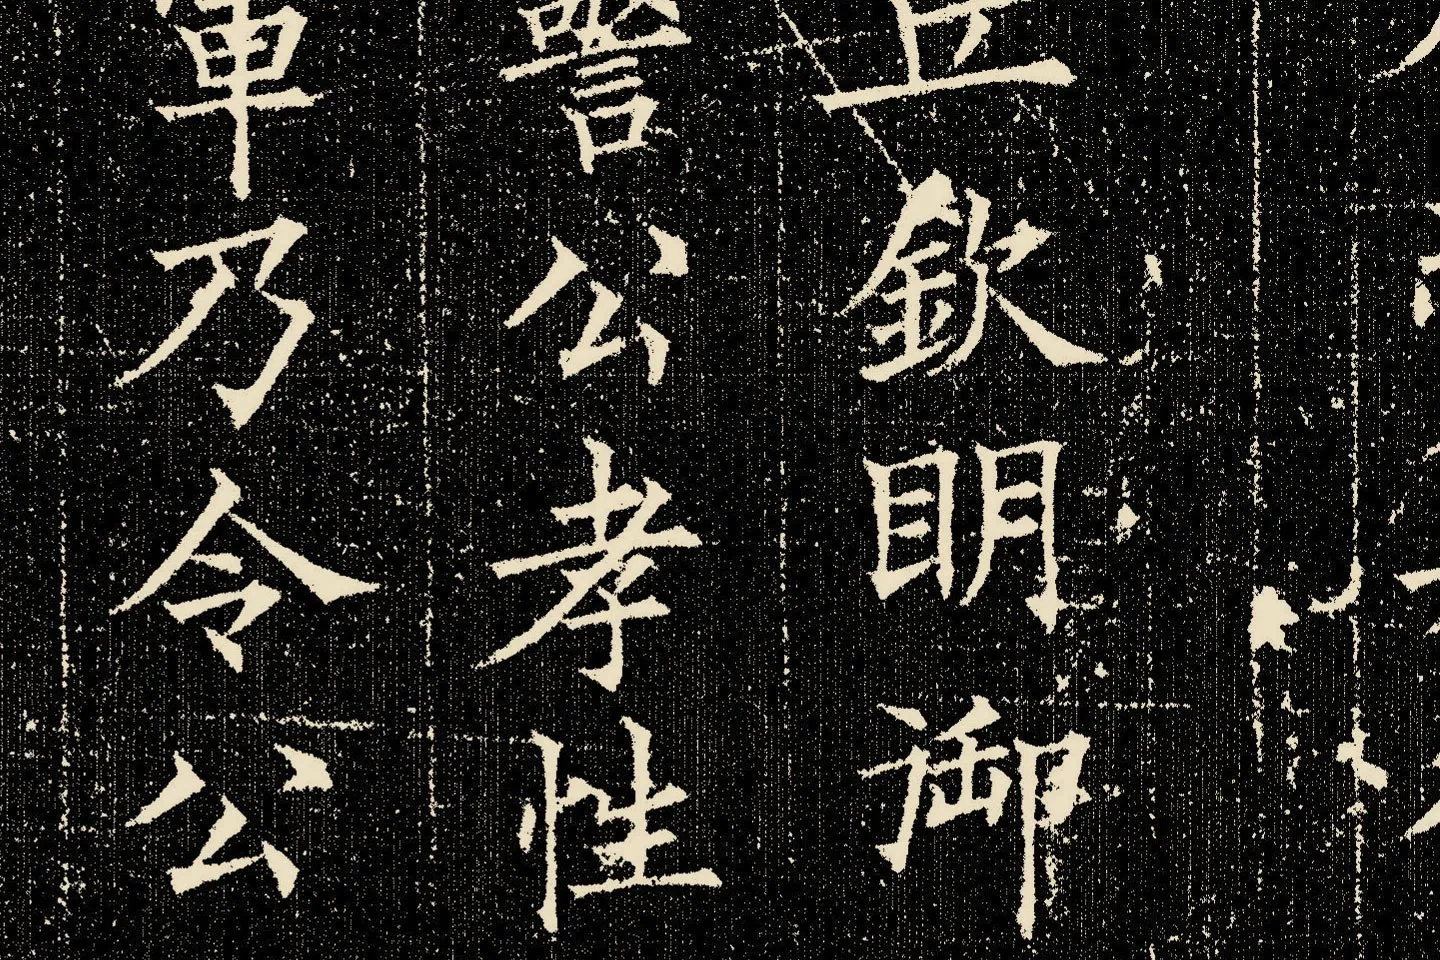 丘欽明御
警公孝性
軍乃令公